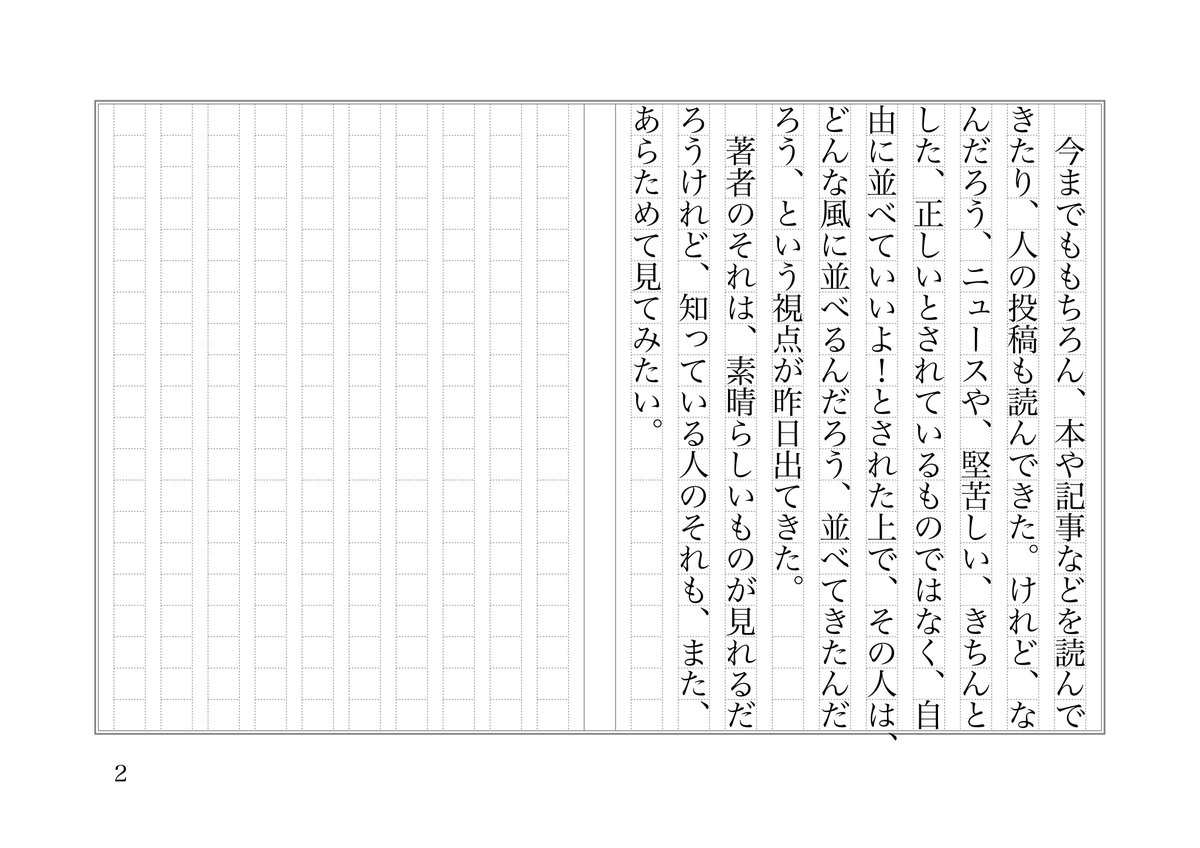 今までももちろん、本や記事などを読んで
きたり、人の投稿も読んできた。けれど、な
んだろう、ニュースや、堅苦しい、きちんと
した、正しいとされているものではなく、自
由に並べていいよ！とされた上で、その人は、
どんな風に並べるんだろう、並べてきたんだ
ろう、という視点が昨日出てきた。
　著者のそれは、素晴らしいものが見れるだ
ろうけれど、知っている人のそれも、また、
あらためて見てみたい。
2